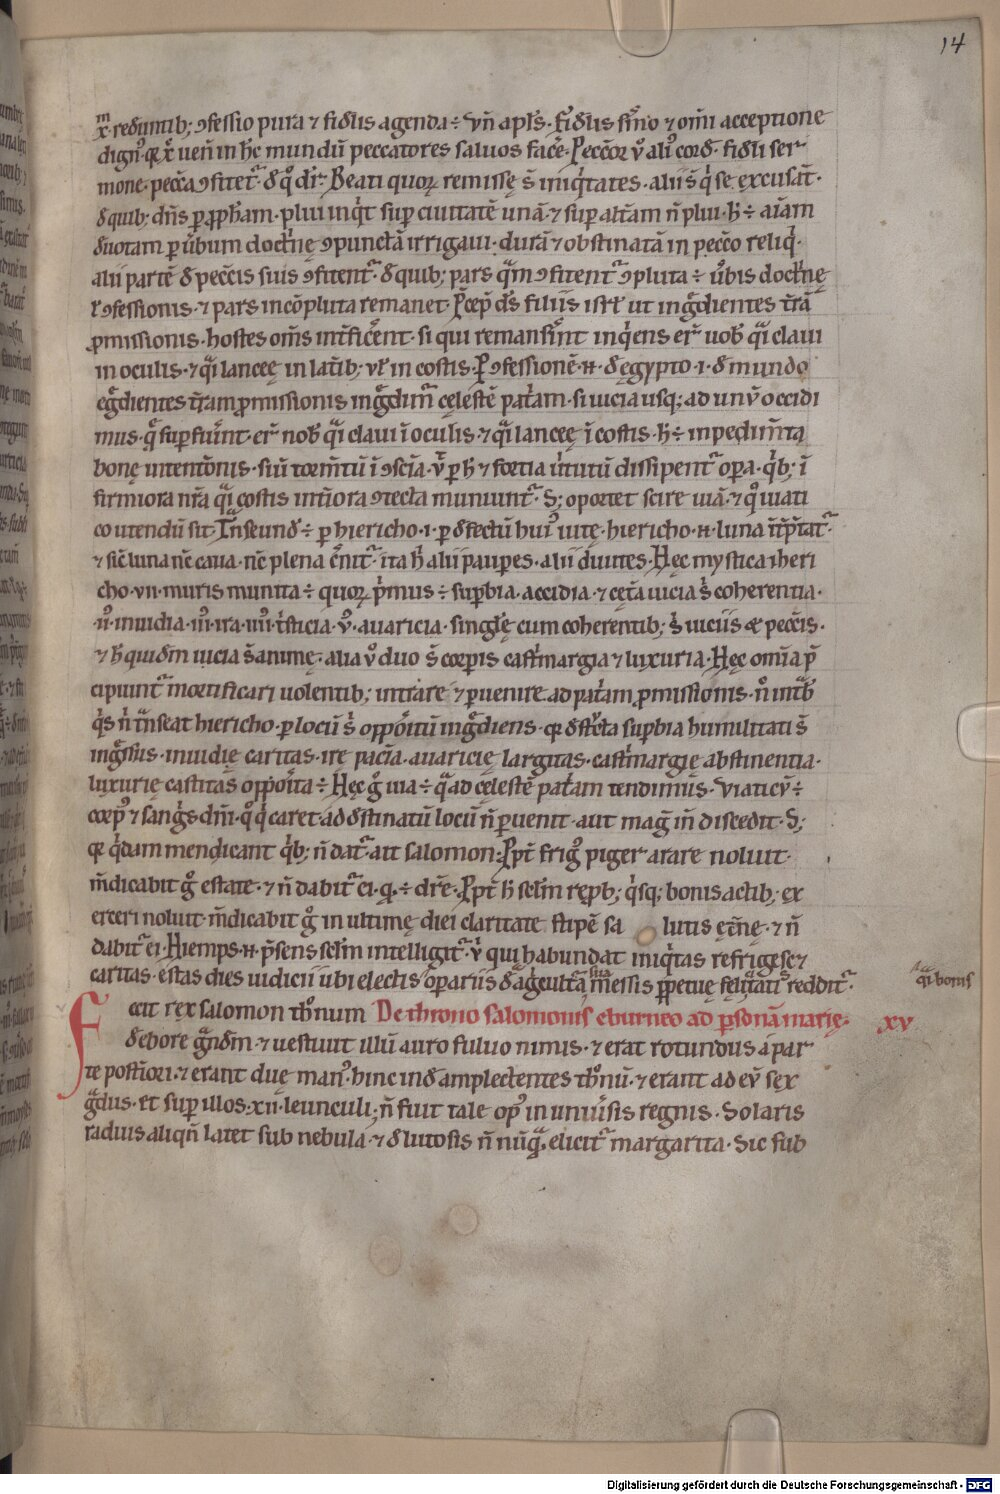 14
x̄. redeuntib; ꝯfessio pura ⁊ fidelis agenda ÷ vn̄ apl's. fidelis sermo ⁊ om̄i acceptione
dign' q̄ xp̄c uen̄ in hc̄ mundū peccatores saluos face͛. Pecc̄or v͛o ali' cord̄. fideli ser
mone. pecc̄a ꝯfitet᷑. de q'b; dr̄. Beati quoꝝ remissę s̄ iniq'tates. alii s̄ q' se excusāt.
de quib; dn̄s ꝑ ꝓph̄am. plui inq't sup̄ ciuitatē unā. ⁊ sup̄ alt͛am n̄ plui. h' ÷ aīam
deuotam ꝑ u͛bum doct'nę ꝯpunctā irrigaui. durā ⁊ obstinatā in pecc̄o reliq'.
alii partē de pecc̄is suis ꝯfitent᷑. de quib; pars q̄m ꝯfitent᷑ ꝯpluta ÷ u͛bis doct'nę
ł ꝯfessionis. ⁊ pars incōpluta remanet. P̄cep̄ ds̄ filiis isrl' ut ing͛dientes t͛rā
ꝓmissionis. hostes om̄s int͛ficerent. si qui remanserint inq'ens er̄ uob' q̄i claui
in oculis. ⁊ q̄i lanceę in lat͛ib; ul' in costis. P' ꝯfessionē .n̄. de egypto .i. de mundo
eg͛dientes t͛ram ꝓmissionis ing͛dim᷑ cęlestē pat͛am. si uicia usq; ad unū occidi
mus. q̄ sup̄fuerint. er̄ nob' q̄i claui ī oculis. ⁊ q̄i lanceę ī costis. h' ÷ inpedim̄ta
bonę intentōnis. siū torm̄tū ī ꝯsciā. v͛ ꝑ h' ⁊ fortia u͛tutū dissipent᷑ opa. q'b; ī
firmiora nr̄a q̄i costis int͛iora ꝯtecta muniunt᷑. S; oportet scire uiā. ⁊ q' uiati
co utendū sit. T̄nseund̄ ÷ ꝑ hiericho .i. ꝑ defectū hui' uitę. hiericho .n̄. luna int͛p̄tat᷑.
⁊ sic̄ luna nc̄ caua. nc̄ plena c͛nit᷑. ita h' alii pauperes. alii diuites. Hęc mystica iheri
cho .vii. muris munita ÷ quoꝝ p'mus ÷ sup̄bia. accidia. ⁊ cęt͛a uicia s' coherentia.
.ii'. inuidia .iii'. ira .iiii'. t'sticia .v'. auaricia. singulę cum coherentib; s' uiciis ⁊ pecc̄is.
⁊ h' quidem uicia s̄ animę. alia v͛o duo s̄ corꝑis castrimargia ⁊ luxuria. Hęc om̄ia p̄
cipiunt᷑ mortificari uolentib; intrare ⁊ ꝑuenire ad pat͛am ꝓmissionis. n̄ intrab'
q's n̄ t̄nseat hiericho. ꝑ locū s' oppositū ing͛diens. q̄ destructa sup̄bia humilitati s̄
ing͛ssus. inuidię caritas. irę paciā. auaricię largitas. castrimargię abstinentia.
luxurię castitas opposita ÷. Hęc g' uia ÷ q̄ ad cęlestē pat͛am tendimus. Viatic' v͛ ÷
corp' ⁊ sang's dn̄i. q' q' caret. ad destinatū locū n̄ ꝑuenit. aut mag' in̄ discedit. S;
q̄ q'dam mendicant q'b; n̄ dat᷑. ait salomon: Ppt͛ frig' piger arare noluit.
m̄dicabit g' estate. ⁊ n̄ dabit᷑ ei. q̄ ÷ dr̄e. Ppt͛ h' sc̄lm rep̄b; q'sq; bonis actib; ex
erceri noluit. m̄dicabit g' in ultimę diei claritate stipē sa lutis ęt͛nę. ⁊ n̄
dabit᷑ ei. Hiemps .n̄. p̄sens sc̄lm intelligit᷑. v' qui habundat iniq'tas refrigesc⁊
caritas. ęstas dies iudicii ubi electis oꝑariis de agricultura sua messis ꝑpetuę felicitatis reddit᷑.
q̄i bonis
Fecit rex salomon thronum De throno salomonis eburneo ad ꝑsonā marię. XV
de ebore grandem. ⁊ uestiuit illū auro fuluo nimis. ⁊ erat rotundus a par
te posteriori. ⁊ erant duę man'. hinc inde amplectentes thronū. ⁊ erant ad eū sex
gradus. et sup̄ illos .xii. leunculi. n̄ fuit tale op' in uniuersis regnis. Solaris
radius aliqn̄ latet sub nebula. ⁊ de lutosis n̄ nūq̄ elicit᷑ margarita. Sic sub
Digitalisierung gefördert durch die Deutsche Forschungsgemeinschaft - DFG